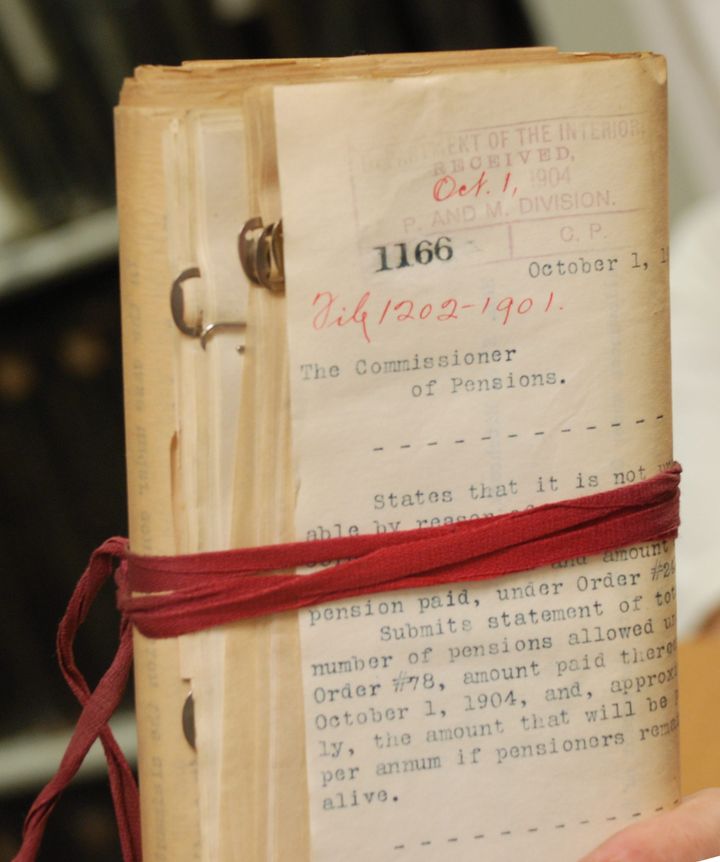 DEPARTMENT OF THE INTERIOR
RECEIVED,
Oct. 1, 1904
P. AND M. DIVISION.
1166 C. P.
October 1, 1
File 1202-1901.
The Commissioner
of Pensions.
States that it is not
able by reason of
and amount
pension paid, under Order #2
Submits statement of tot
number of pensions allowed un
Order #78, amount paid there
October 1, 1904, and, approx
ly, the amount that will be
per annum if pensioners rema
alive.